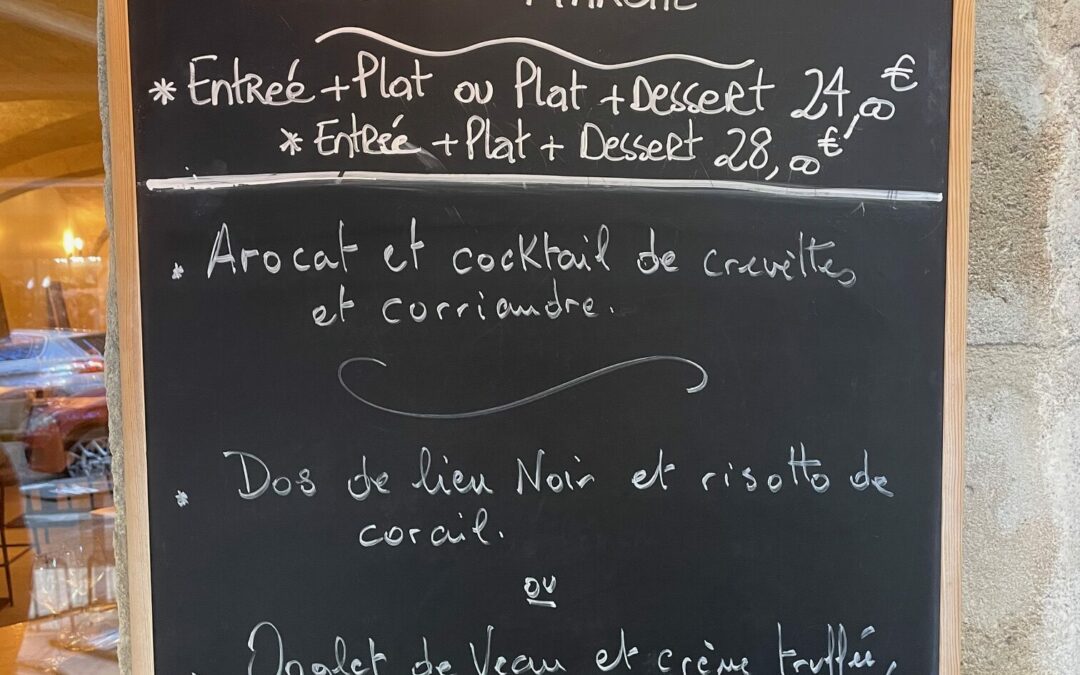 * Entrée + Plat ou Plat + Dessert 24,00€
* Entrée + Plat + Dessert 28,00€
* Avocat et cocktail de crevettes
et corriandre.
* Dos de lieu Noir et risotto de
corail.
ou
* Onglet de Veau et crème truffée,